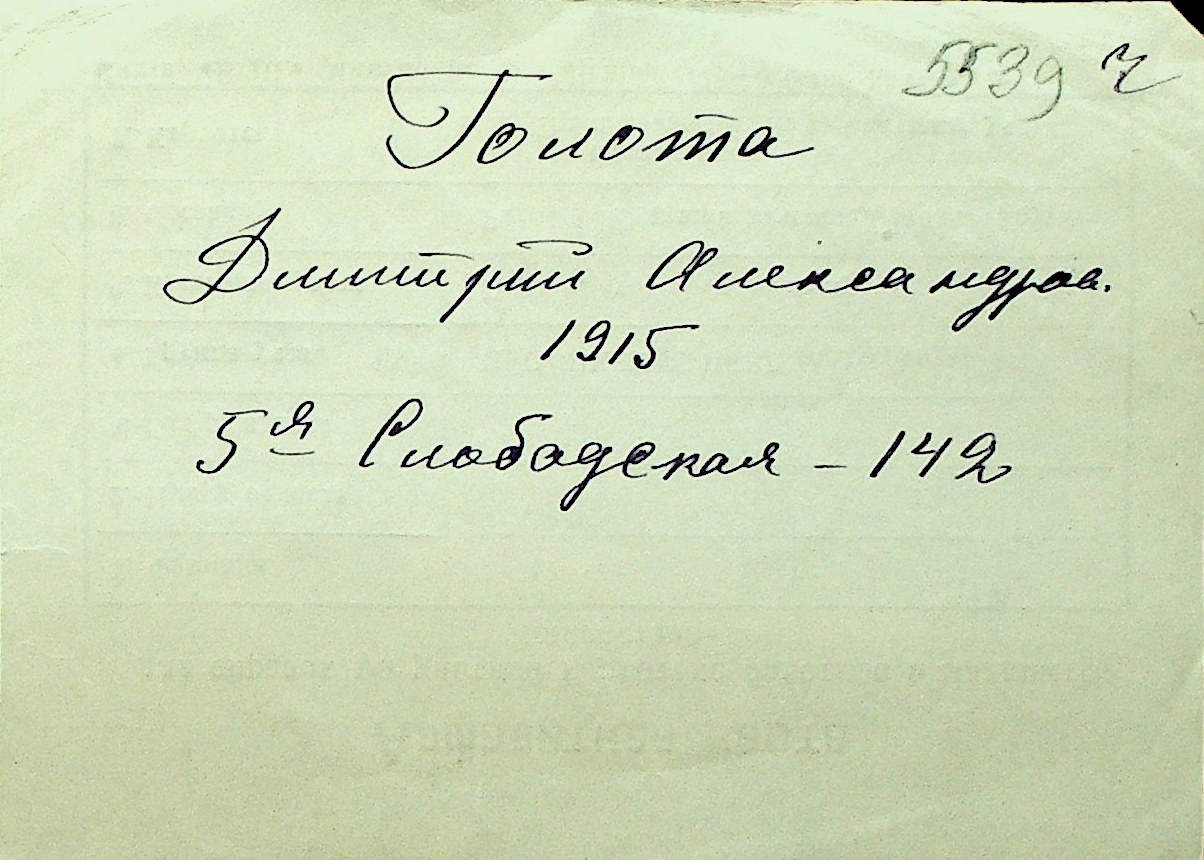 5539 Ч
Голота
Дмитрий Александров.
1915
5я Слободская - 142